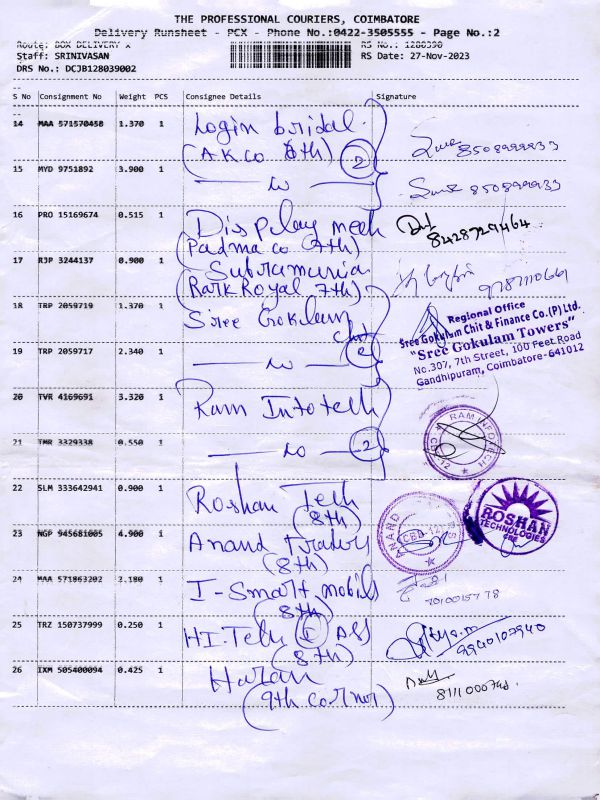 THE PROFESSIONAL COURIERS, COIMBATORE
Delivery Runsheet - PCX - Phone No.:0422-3505555 - Page No.:2
Route: BOX DELIVERY x RS No.: 1280390
Staff: SRINIVASAN RS Date: 27-Nov-2023
DRS No.: DCJB128039002
S No Consignment No Weight PCS Consignee Details Signature
14 MAA 571570458 1.370 1 Login bridal
(A.K co 8th) 2 8508999933
15 MYD 9751892 3.900 1
16 PRO 15169674 0.515 1 Display mech 8428729464
(Padma co 7th)
17 RJP 3244137 0.900 1 Subramunia
(Park Royal 7th) 9787110661
18 TRP 2059719 1.370 1 Sree Gokulam
Chit
Regional Office
Sree Gokulam Chit & Finance Co.(P) Ltd.
"Sree Gokulam Towers"
No.307, 7th Street, 100 Feet Road
Gandhipuram, Coimbatore-641012
19 TRP 2059717 2.340 1
20 TVR 4169691 3.320 1 Ram Infotech
RAM INFOTECH
CBE-12
21 TMR 3329338 0.550 1 2
22 SLM 333642941 0.900 1 Roshan Tech
(8th)
ROSHAN
TECHNOLOGIES
CBE
23 NGP 945681005 4.900 1 Anand Traders
(8th)
ANAND
CBE-12
24 MAA 571863202 3.180 1 I-Smart mobils
(8th)
25 TRZ 150737999 0.250 1 HI.Tech
(8th) 9940102940
26 IXM 505400094 0.425 1 Haran
(9th corner)